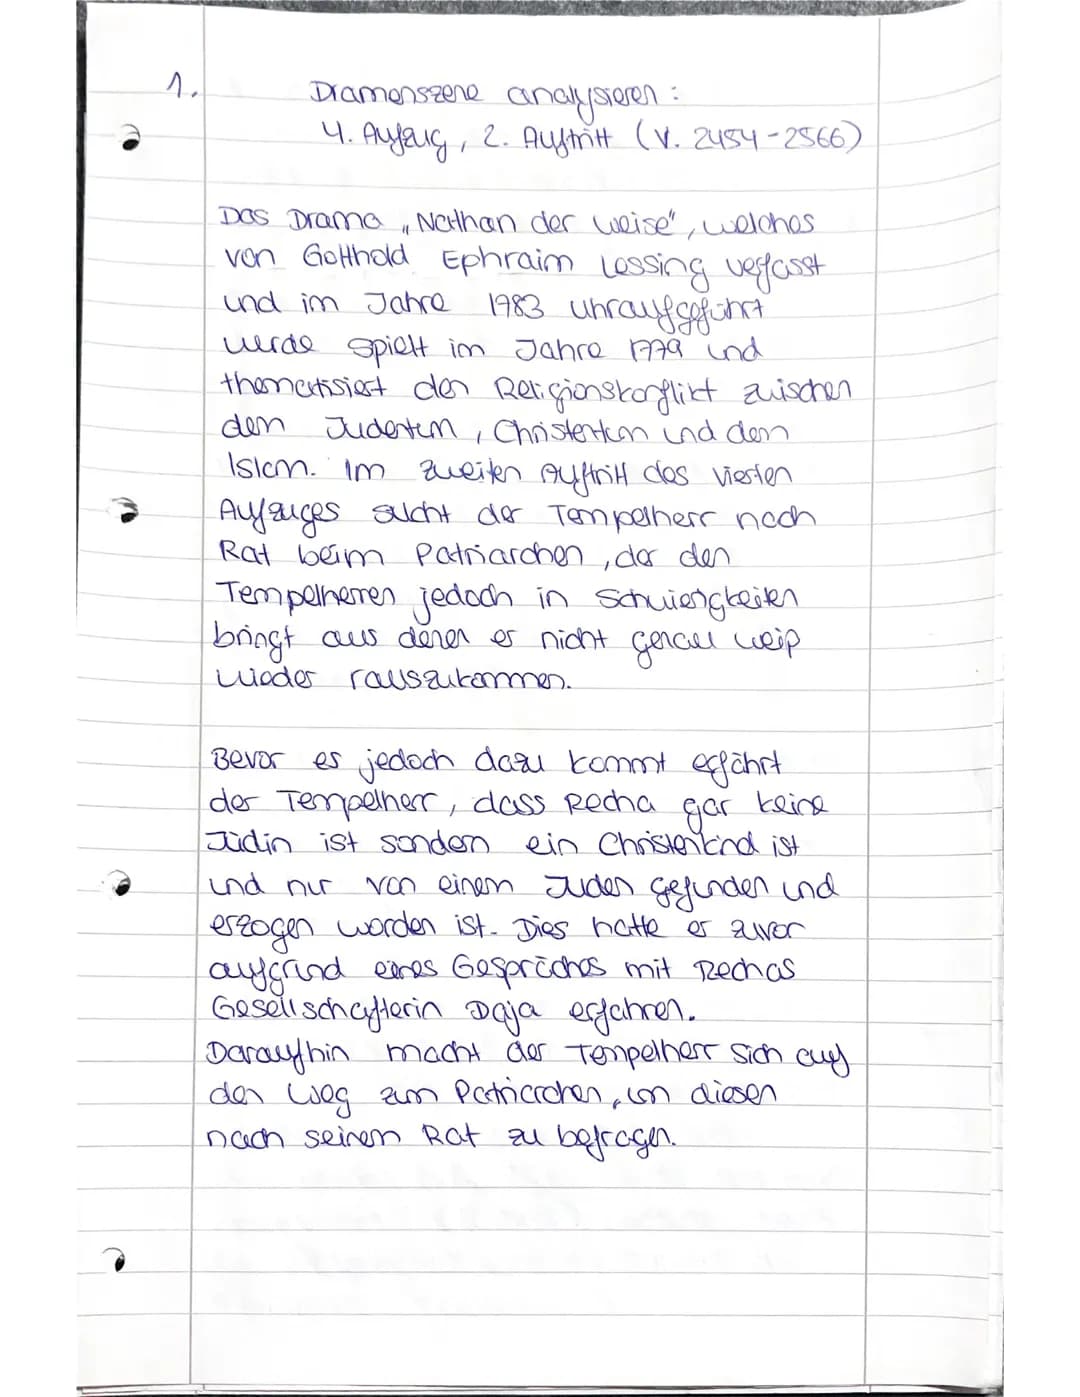 1. Dramenszene analysieren:
4. Aufzug, 2. Auftritt (V. 2454-2566)
Das Drama „Nathan der weise", welches
von Gotthold Ephraim Lessing verfasst
und im Jahre 1983 uhraufgeführt
wurde spielt im Jahre 1779 und
thematisiert den Religionskonflikt zwischen
dem Judentum, Christentum und dem
Islam. Im zweiten Auftritt des vierten
Aufzuges sucht der Tempelherr nach
Rat beim Patriarchen, der den
Tempelherren jedoch in Schwierigkeiten
bringt aus denen er nicht genau weiß
wieder rauszukommen.
Bevor es jedoch dazu kommt erfährt
der Tempelherr, dass Recha gar keine
Jüdin ist sondern ein Christenkind ist
und nur von einem Juden gefunden und
erzogen worden ist. Dies hatte er zuvor
aufgrund eines Gespräches mit Rechas
Gesellschafterin Daja erfahren.
Daraufhin macht der Tempelherr sich auf
den Weg zum Patriarchen, um diesen
nach seinem Rat zu befragen.